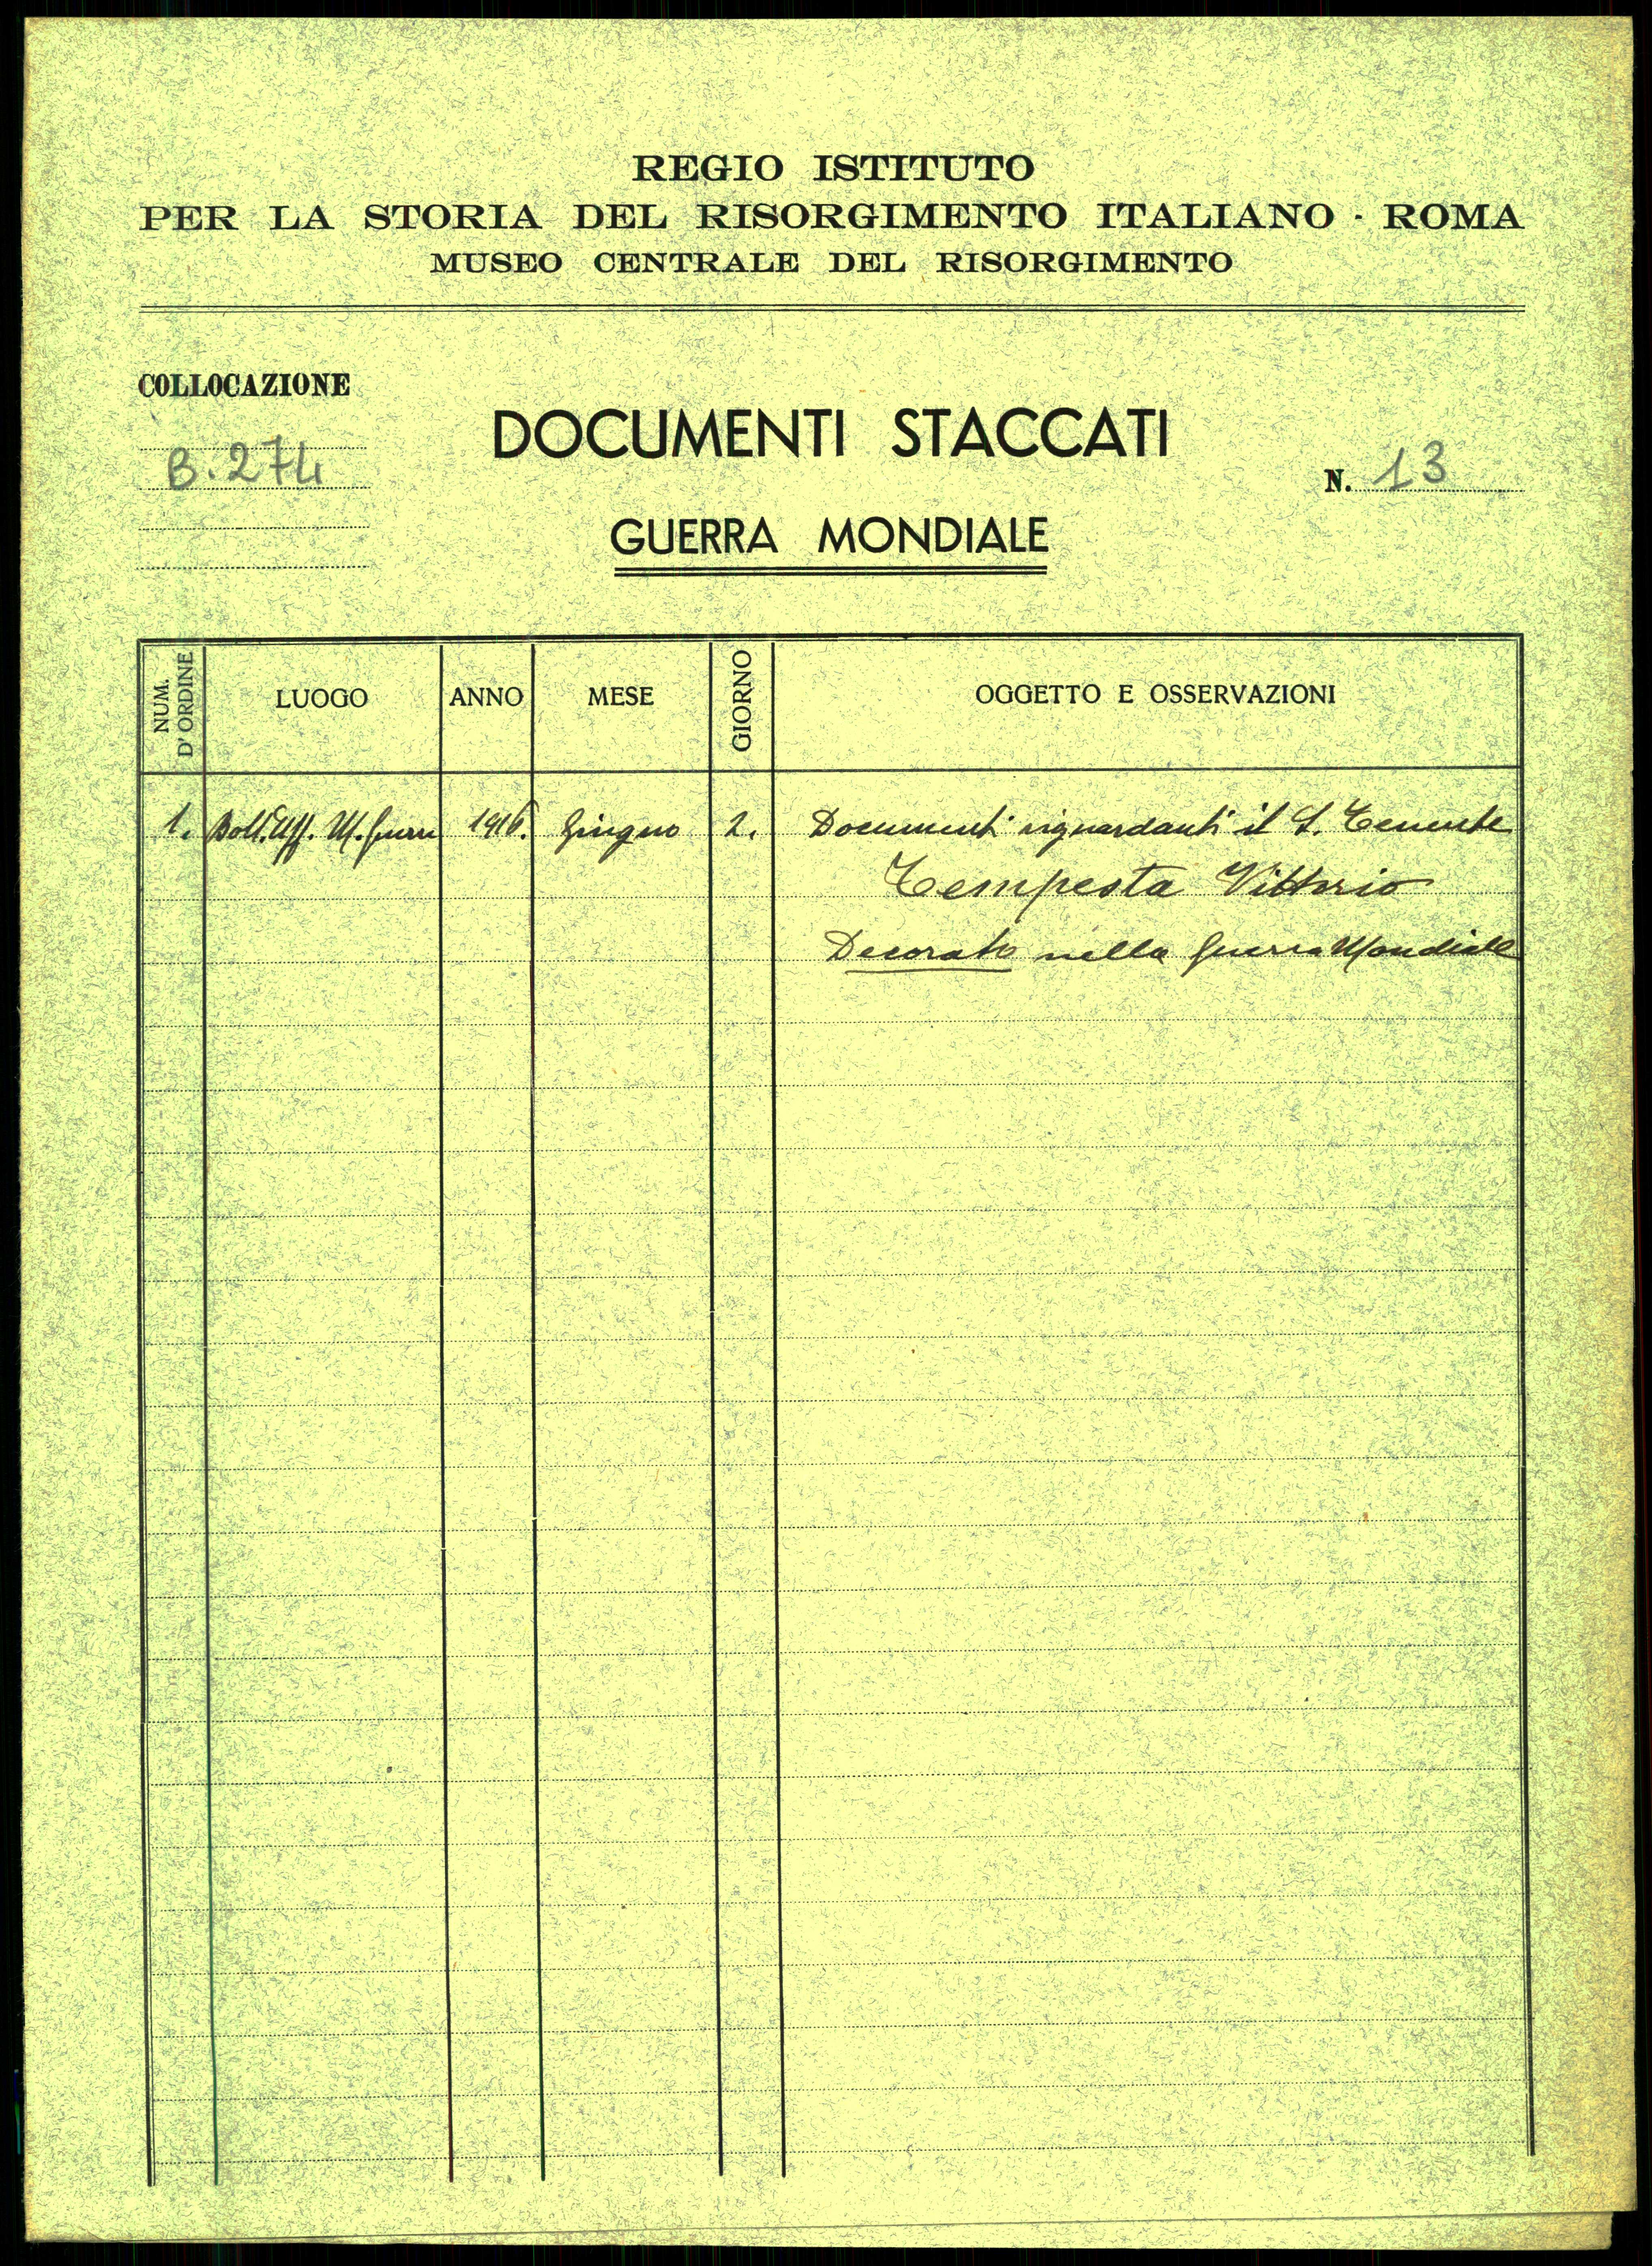 REGIO ISTITUTO
PER LA STORIA DEL RISORGIMENTO ITALIANO - ROMA
MUSEO CENTRALE DEL RISORGIMENTO
COLLOCAZIONE
B. 274
DOCUMENTI STACCATI
N. 13
GUERRA MONDIALE
NUM. D'ORDINE LUOGO ANNO MESE GIORNO OGGETTO E OSSERVAZIONI
1. Boll. Uff. M. Guerra 1916. Giugno 2. Documenti riguardanti il S. Tenente
Tempesta Vittorio
Decorato nella Guerra Mondiale